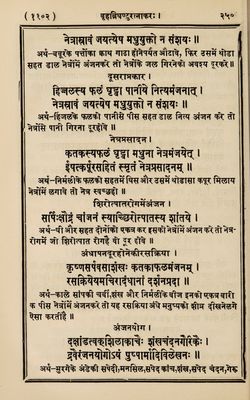 ( ११०२ ) बृहन्निघण्टुरत्नाकरः । ३५०
नेत्रास्रावं जयत्येष मधुयुक्तो न संशयः ॥
अर्थ-बबूरके पत्तोंका काथ गाढा होनेपर्यंत औटावे, फिर उसमें थोडा
सहत डाल नेत्रोंमें अंजनकरे तो नेत्रोंके जल गिरनेको अवश्य दूरकरे॥
दूसराप्रकार ।
हिज्जलस्य फलं घृष्ट्वा पानीये नित्यमंजनात् ।
नेत्रस्रावं जयत्येष मधुयुक्तो न संशयः ॥
अर्थ-हिजलके फलको पानीसे पीस सहत डाल नित्य अंजन करे तो
नेत्रोंसे पानी गिरना दूरहोवे ॥
नेत्रप्रसादन ।
कतकस्यफलं घृष्ट्वा मधुना नेत्रमंजयेत् ।
ईषत्कर्पूरसहितं स्मृतं नेत्रप्रसादनम् ॥
अर्थ-निर्मलीके फलको सहतमें घिस और उसमें थोडासा कपूर मिलाय
नेत्रोंमें लगावे तो नेत्र स्वच्छहो ॥
शिरोत्पातरोगमेंअंजन
सर्पिःक्षौद्रं चांजनं स्याच्छिरोत्पातस्य शांतये ।
अर्थ-घी और सहत दोनोंको एकत्र कर इसको नेत्रोंमें अंजन करे तो नेत्र-
रोगमें जो शिरोत्पात रोग है वो दूर होवे ॥
अंधापनदूरहोनेकीरसक्रिया
कृष्णसर्पवसाशंखः कतकाफलमंजनम् ।
रसक्रियेयमचिरादंधानां दर्शनप्रदा ॥
अर्थ-काले सांपकी चर्बी,शंख और निर्मलीके बीज इनको एकत्र बारी
क पीस नेत्रोंमें अंजनकरे तो यह रसक्रिया अंधे मनुष्यके शीघ्र दीखनेलगे
ऐसा करतीहै ॥
अंजनयोग ।
दक्षांडत्वक्शिलाकाचैः शंखचंदनगैरिकैः ।
द्रव्यैरंजनयोगोऽयं पुष्पार्मादिविलेखनः ॥
अर्थ-मुरगेके अंडेकी सपेदी,मनसिल,सपेद कांच,शंख,सपेद चंदन,गेरू